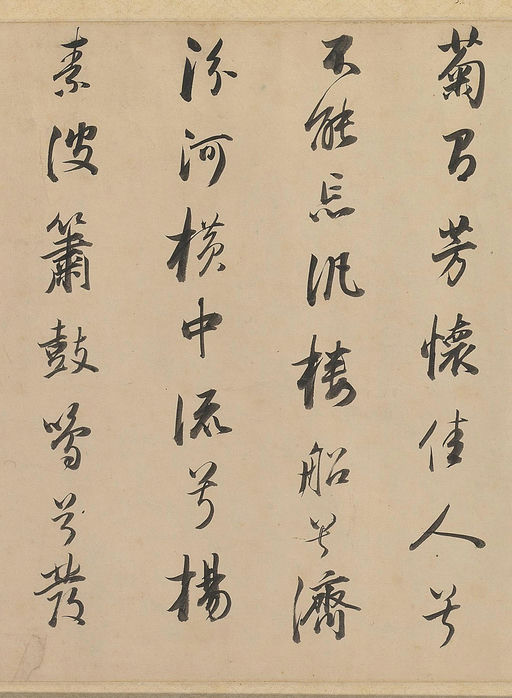 菊有芳懷佳人兮
不能忘汎樓船兮濟
汾河橫中流兮楊
素波簫鼓鳴兮發